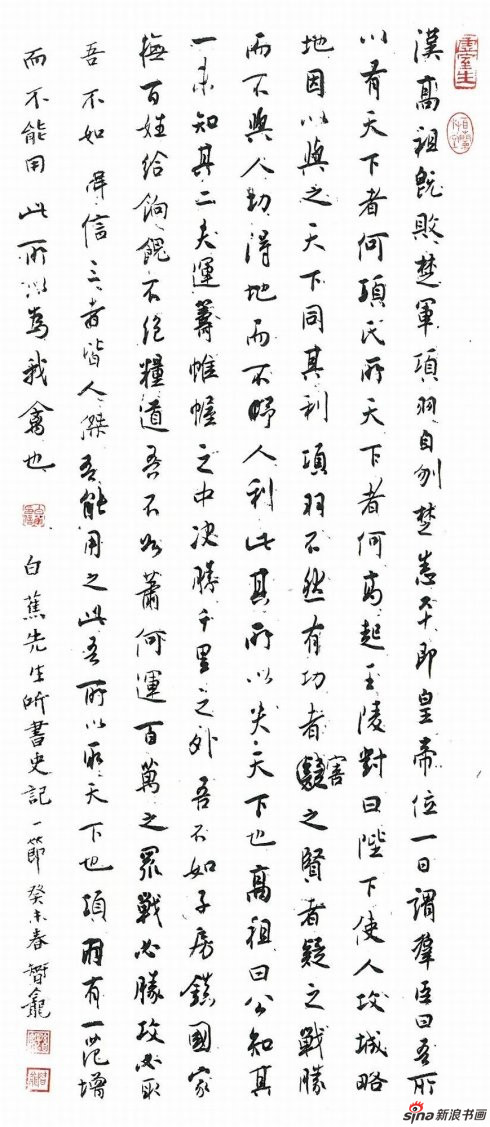 漢高祖既敗楚軍項羽自刎楚悉平即皇帝位一日謂羣臣曰吾所
以有天下者何項氏所天下者何高起王陵對曰陛下使人攻城略
地因以與之天下同其利項羽不然有功者疑害之賢者疑之戰勝
而不與人功得地而不人利此其所以失天下也高祖曰公知其
一未知其二夫運籌帷幄之中決勝千里之外吾不如子房鎮國家
撫百姓給餉餽不絕糧道吾不如蕭何運百萬之眾戰必勝攻必取
吾不如韓信三者皆人傑吾能用之此吾所以取天下也項羽有一范增
而不能用此所以為我禽也
白蕉先生所書史記一節癸未春智龕
sina新浪书画